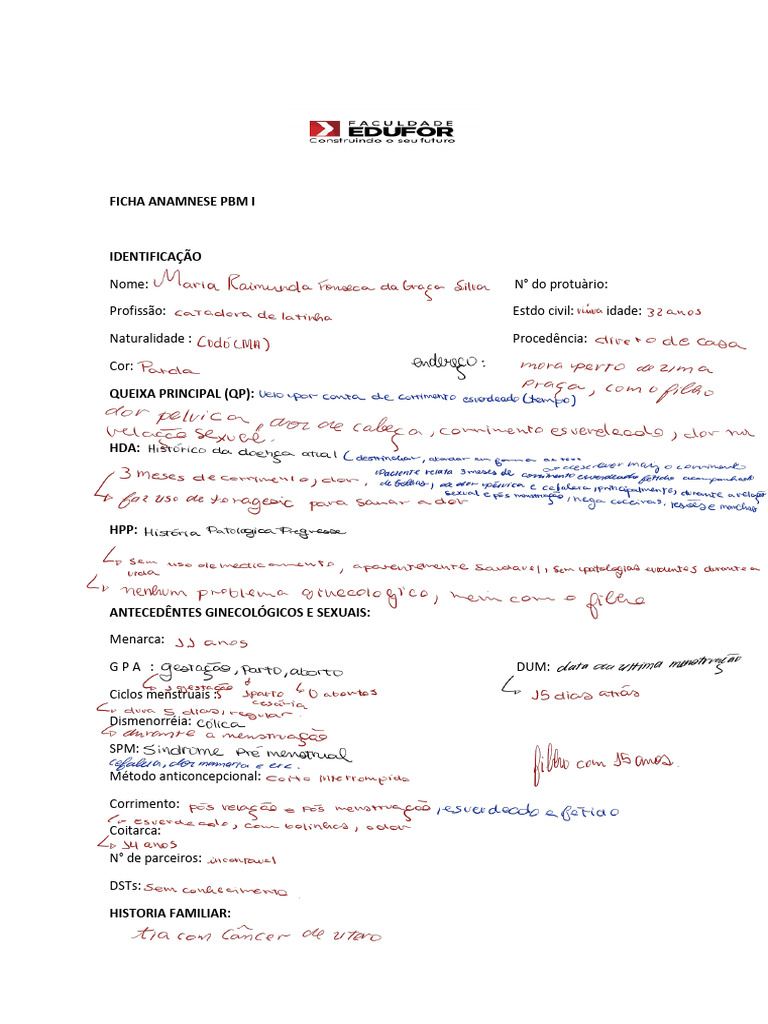 FACULDADE
EDUFOR
Construindo o seu futuro
FICHA ANAMNESE PBM I
IDENTIFICAÇÃO
Nome: Maria Raimunda Fonseca da Graça Silva N° do protuário:
Profissão: catadora de latinha Estdo civil: viúva idade: 32 anos
Naturalidade : Codó (MA) Procedência: direto de casa
Cor: Parda endereço: mora perto de uma
praça, com o filho
QUEIXA PRINCIPAL (QP): veio por conta de corrimento esverdeado (tempo)
dor pelvica, dor de cabeça, corrimento esverdeado, dor na
relação sexual.
HDA: Histórico da doença atual (destrinchar, abordar em forma de
descrever mais o corrimento
3 meses de corrimento, dor, Paciente relata 3 meses de corrimento esverdeado fétido acompanhado
de bolhas, de dor pélvica e cefaleia, principalmente, durante a relação
faz uso de toragesic para sanar a dor sexual e pós menstruação, nega coceiras, lesões e manchas
HPP: História Patologica Pregressa
sem uso de medicamento, aparentemente saudável, sem patologias evidentes durante a
vida
nenhum problema ginecologico, nem com o filho
ANTECEDÊNTES GINECOLÓGICOS E SEXUAIS:
Menarca: 11 anos
G P A : gestação, parto, aborto DUM: data da ultima menstruação
1 gestação 1 parto 0 abortos 15 dias atrás
Ciclos menstruais : cesária
dura 5 dias, regular.
Dismenorréia: cólica
durante a menstruação
SPM: Sindrome Pré menstrual filho com 15 anos.
cefaleia, dor mamaria e etc.
Método anticoncepcional: Coito Interrompido
Corrimento: pós relação e pós menstruação, esverdeado e fétido
esverdeado, com bolinhas, odor
Coitarca:
14 anos
N° de parceiros: incontavel
DSTs: sem conhecimento
HISTORIA FAMILIAR:
tia com câncer de utero